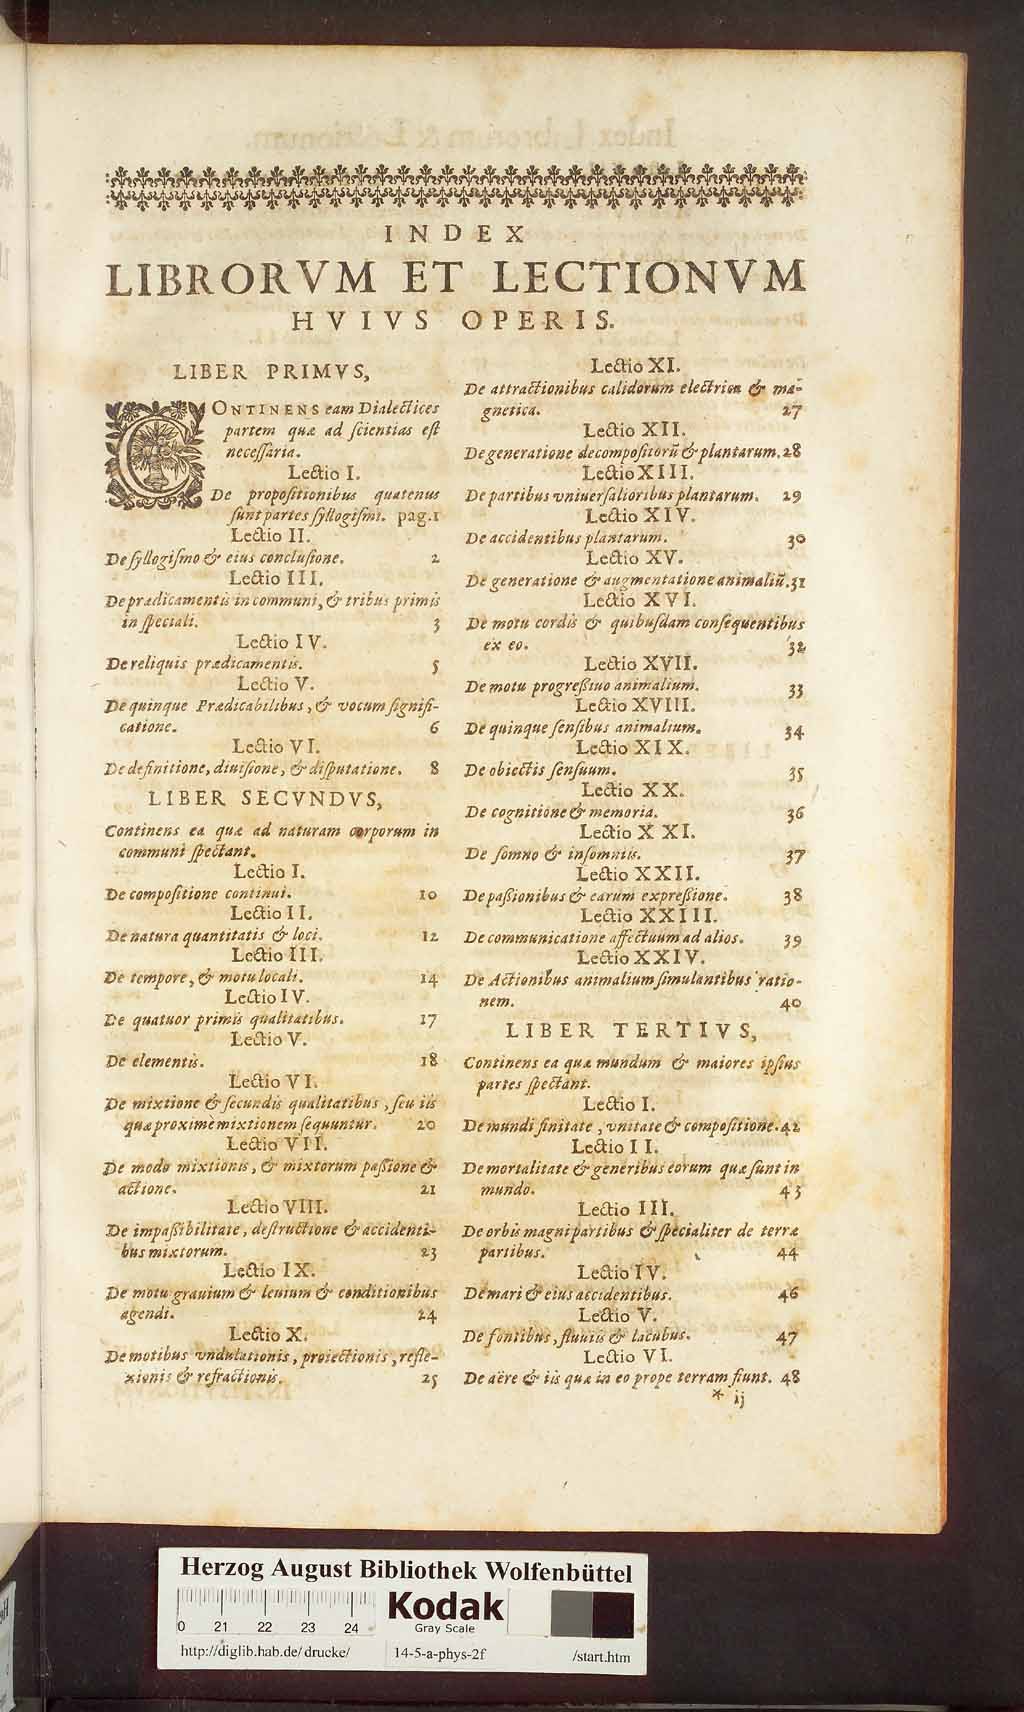 INDEX
LIBRORVM ET LECTIONVM
HVIVS OPERIS.
LIBER PRIMVS,
CONTINENS eam Dialectices
partem quæ ad ſcientias eſt
neceſſaria.
Lectio I.
De propoſitionibus quatenus
ſunt partes ſyllogiſmi. pag.1
Lectio II.
De ſyllogiſmo & eius concluſione. 2
Lectio III.
De prædicamentis in communi, & tribus primis
in ſpeciali. 3
Lectio IV.
De reliquis prædicamentis. 5
Lectio V.
De quinque Prædicabilibus, & vocum ſignifi-
catione. 6
Lectio VI.
De definitione, diuiſione, & diſputatione. 8
LIBER SECVNDVS,
Continens ea quæ ad naturam corporum in
communi ſpectant.
Lectio I.
De compoſitione continui. 10
Lectio II.
De natura quantitatis & loci. 12
Lectio III.
De tempore, & motu locali. 14
Lectio IV.
De quatuor primis qualitatibus. 17
Lectio V.
De elementis. 18
Lectio VI.
De mixtione & ſecundis qualitatibus, ſeu iis
quæ proximè mixtionem ſequuntur. 20
Lectio VII.
De modo mixtionis, & mixtorum paſſione &
actione. 21
Lectio VIII.
De impaſſibilitate, deſtructione & accidenti-
bus mixtorum. 23
Lectio IX.
De motu grauium & leuium & conditionibus
agendi. 24
Lectio X.
De motibus vndulationis, proiectionis, refle-
xionis & refractionis. 25
Lectio XI.
De attractionibus calidorum electrica & ma-
gnetica. 27
Lectio XII.
De generatione decompoſitorū & plantarum. 28
Lectio XIII.
De partibus vniuerſalioribus plantarum. 29
Lectio XIV.
De accidentibus plantarum. 30
Lectio XV.
De generatione & augmentatione animaliū. 31
Lectio XVI.
De motu cordis & quibuſdam conſequentibus
ex eo. 32
Lectio XVII.
De motu progreſſiuo animalium. 33
Lectio XVIII.
De quinque ſenſibus animalium. 34
Lectio XIX.
De obiectis ſenſuum. 35
Lectio XX.
De cognitione & memoria. 36
Lectio XXI.
De ſomno & inſomniis. 37
Lectio XXII.
De paſſionibus & earum expreſſione. 38
Lectio XXIII.
De communicatione affectuum ad alios. 39
Lectio XXIV.
De Actionibus animalium ſimulantibus ratio-
nem. 40
LIBER TERTIVS,
Continens ea quæ mundum & maiores ipſius
partes ſpectant.
Lectio I.
De mundi finitate, vnitate & compoſitione. 42
Lectio II.
De mortalitate & generibus eorum quæ ſunt in
mundo. 43
Lectio III.
De orbis magni partibus & ſpecialiter de terræ
partibus. 44
Lectio IV.
De mari & eius accidentibus. 46
Lectio V.
De fontibus, fluuiis & lacubus. 47
Lectio VI.
De aëre & iis quæ in eo prope terram fiunt. 48
* ij
Herzog August Bibliothek Wolfenbüttel
0 21 22 23 24
Kodak
Gray Scale
http://diglib.hab.de/drucke/ 14-5-a-phys-2f /start.htm